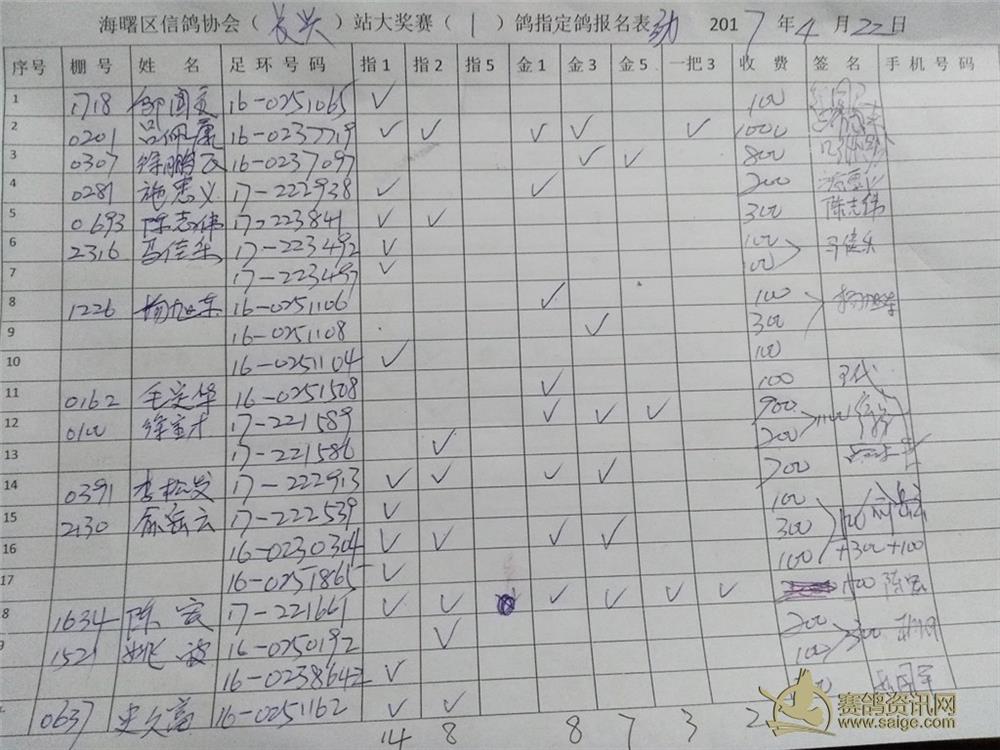 海曙区信鸽协会（长兴）站大奖赛（1）鸽指定鸽报名表 2017年4月22日
序号 棚号 姓名 足环号码 指1 指2 指5 金1 金3 金5 一把3 收费 签名 手机号码
1 1718 16-0251065 ✓ 100
2 0201 吕佩康 16-0237719 ✓ ✓ ✓ ✓ ✓ 1000
3 0307 徐鹏飞 16-0237097 ✓ ✓ 800
4 0281 施惠义 17-222938 ✓ ✓ 200 施惠义
5 0693 陈志伟 17-223841 ✓ ✓ 300 陈志伟
6 2316 马佳乐 17-223492 ✓ 100 马佳乐
7 17-223497 ✓ 100
8 1226 杨旭东 16-0251106 ✓ 100 杨旭东
9 16-0251108 ✓ 300
10 16-0251104 ✓ 100
11 0162 毛定华 16-0251508 ✓ 100 代
12 0100 徐宝才 17-221589 ✓ ✓ ✓ 900
13 17-221586 ✓ 200 1100
14 0391 李松发 17-222913 ✓ ✓ ✓ ✓ 700
15 2130 俞岳云 17-222539 ✓ 100
16 16-0230304 ✓ ✓ ✓ ✓ 300
17 16-0251865 ✓ 100 +300+100
8 1634 陈宏 17-221661 ✓ ✓ ✓ ✓ ✓ ✓ 陈宏
9 1521 姚波 16-0250192 ✓ 200
16-0238642 ✓ 100 300
0637 史久富 16-0251162 ✓ ✓
14 8 8 7 3 2
赛鸽资讯网
www.saige.com